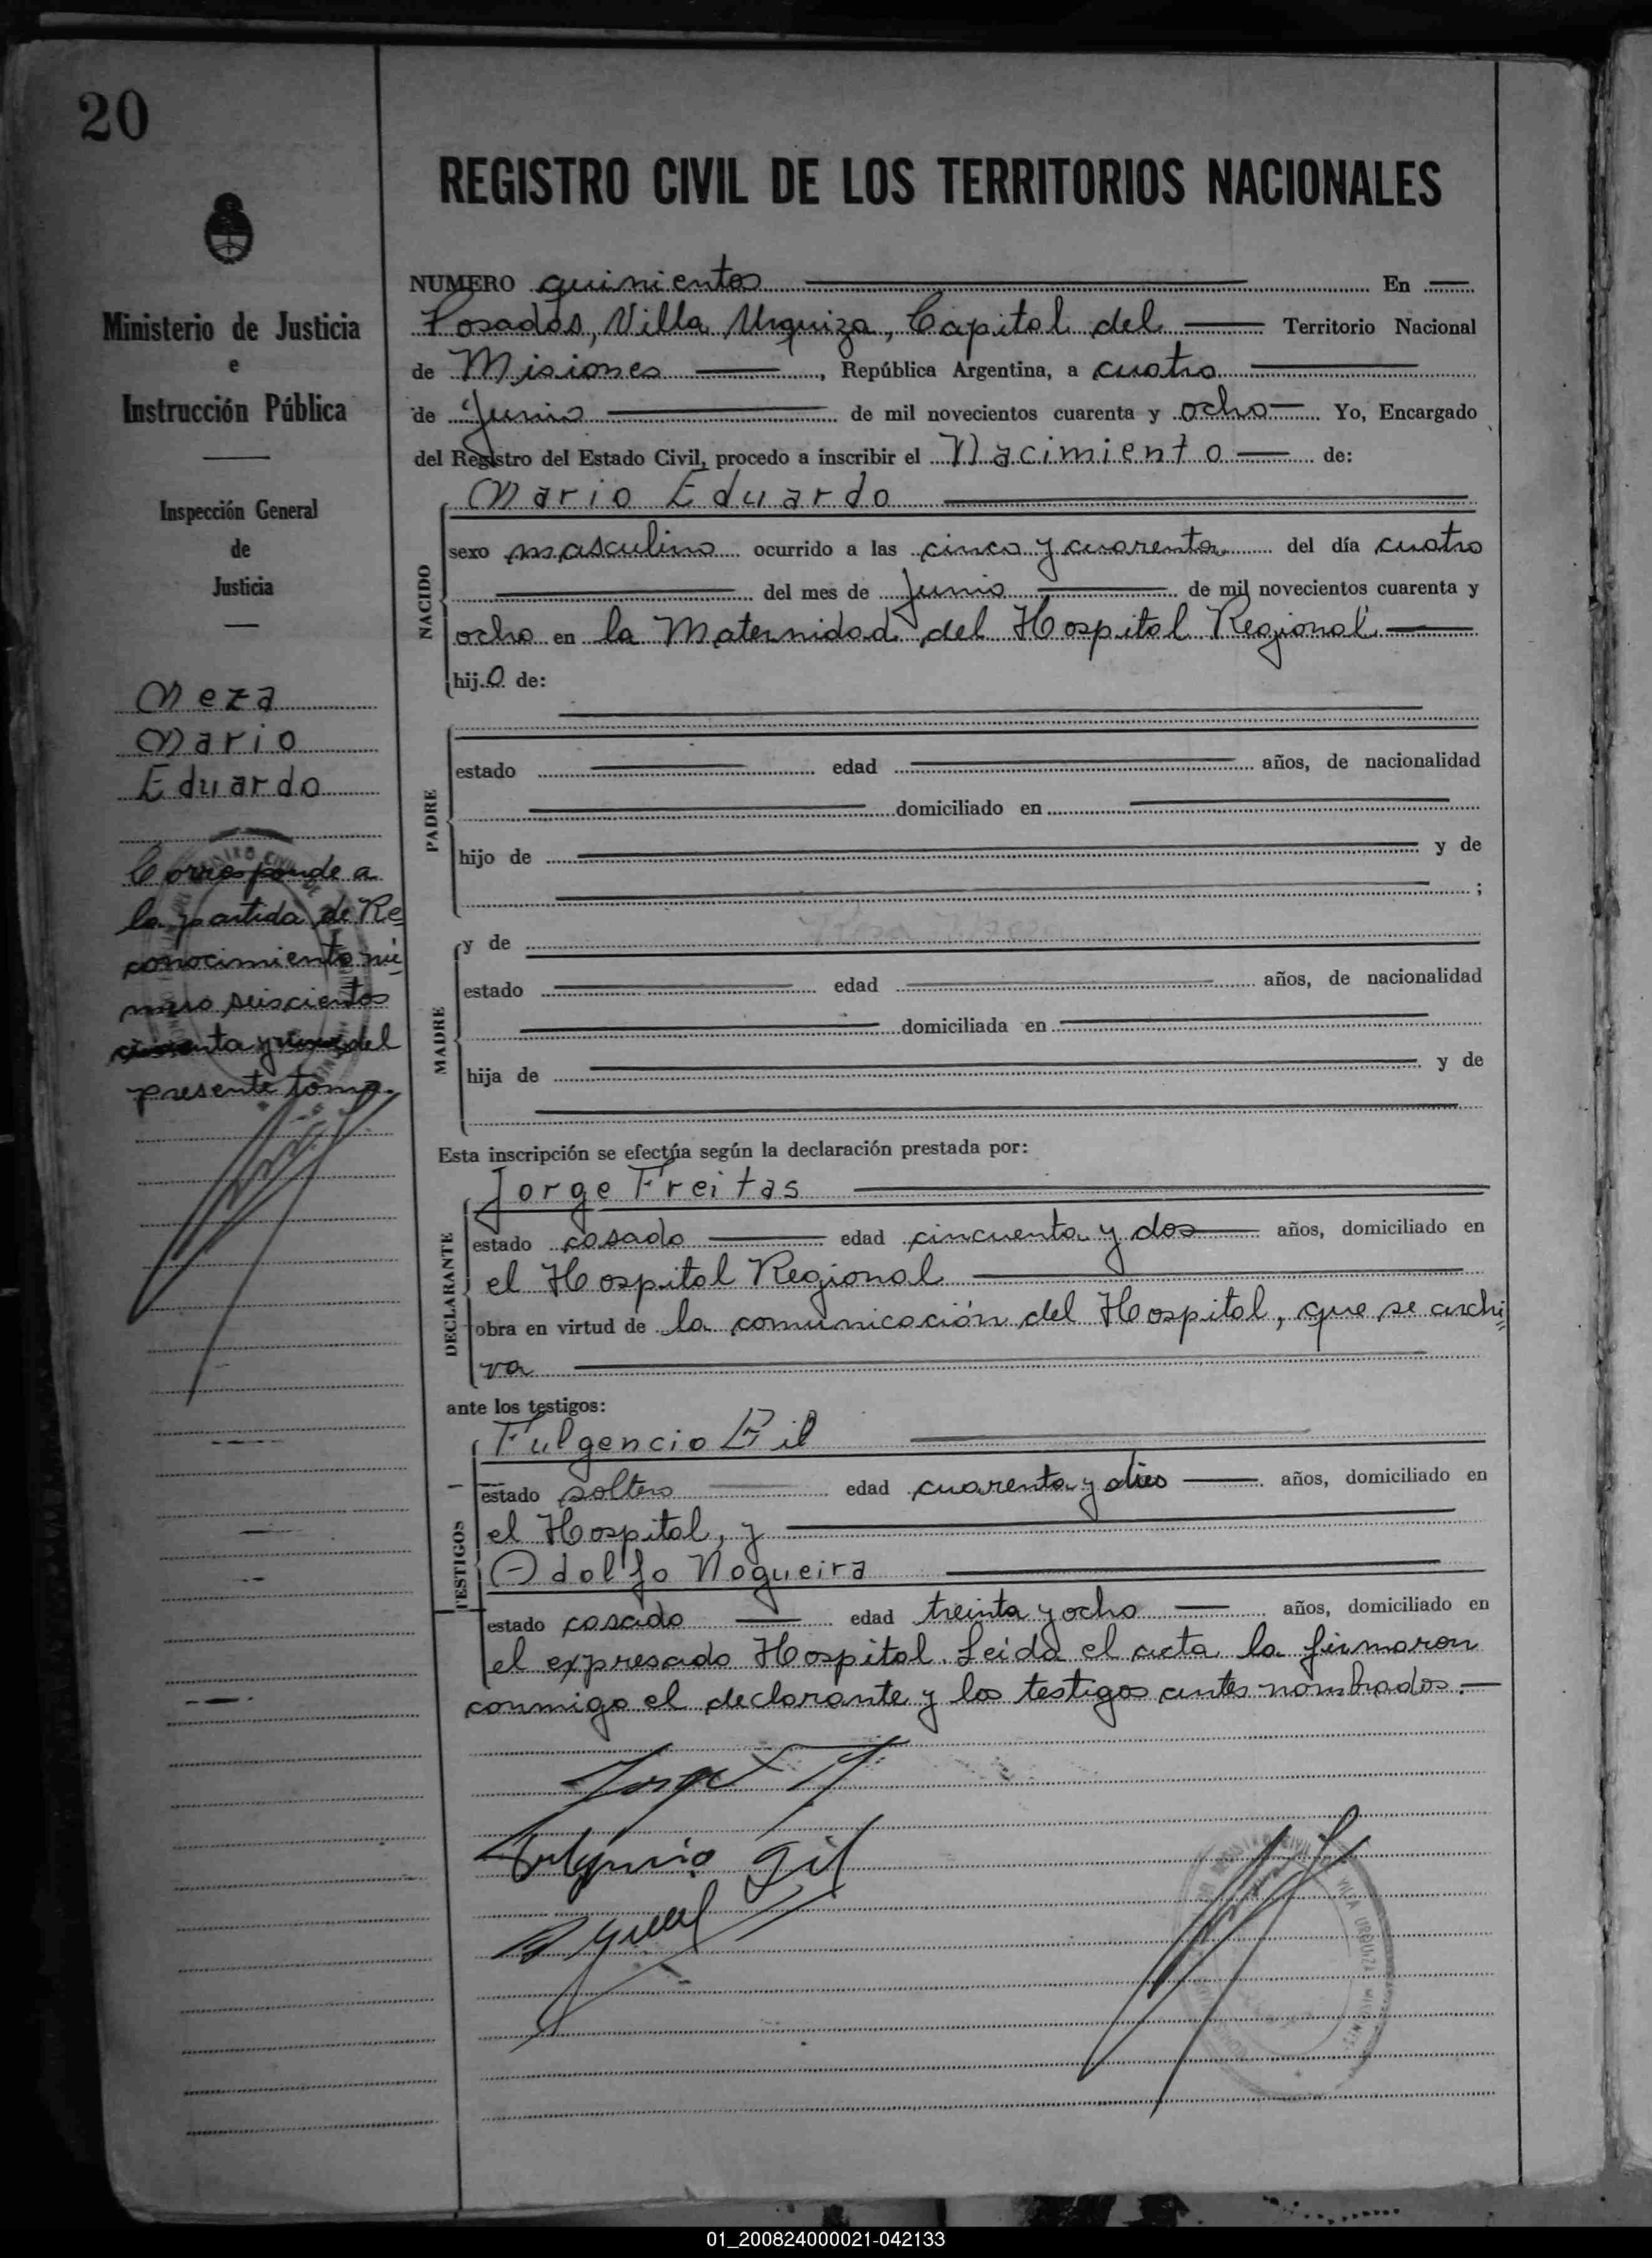 20
Ministerio de Justicia
e
Instrucción Pública
Inspección General
de
Justicia
Meza
Mario
Eduardo
Corresponde a
la partida de Re
conocimiento nú
mero seiscientos
del
presente tomo.
REGISTRO CIVIL DE LOS TERRITORIOS NACIONALES
NUMERO quinientos En
Posadas, Villa Urquiza, Capital del Territorio Nacional
de Misiones, República Argentina, a cuatro
de Junio de mil novecientos cuarenta y ocho Yo, Encargado
del Registro del Estado Civil, procedo a inscribir el Nacimiento de:
Mario Eduardo
NACIDO
sexo masculino ocurrido a las cinco y cuarenta del día cuatro
del mes de Junio de mil novecientos cuarenta y
ocho en la Maternidad del Hospital Regional
hijo de:
PADRE
estado edad años, de nacionalidad
domiciliado en
hijo de y de
;
MADRE
y de
estado edad años, de nacionalidad
domiciliada en
hija de y de
Esta inscripción se efectúa según la declaración prestada por:
DECLARANTE
Jorge Freitas
estado casado edad cincuenta y dos años, domiciliado en
el Hospital Regional
obra en virtud de la comunicación del Hospital, que se archi
va
ante los testigos:
TESTIGOS
Fulgencio Gil
estado soltero edad cuarenta y años, domiciliado en
el Hospital, y
Adolfo Nogueira
estado casado edad treinta y ocho años, domiciliado en
el expresado Hospital. Leida el acta la firmaron
conmigo el declarante y los testigos antes nombrados.
Jorge
Fulgencio Gil
VILLA URQUIZA MISIONES
01_200824000021-042133